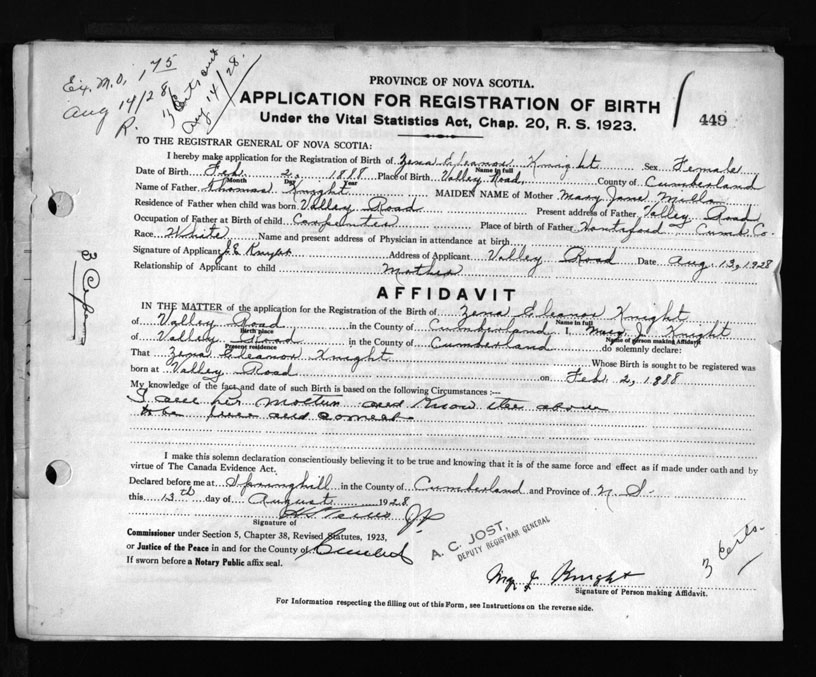 Ex. M.O. 1 75
Aug 14/28
R.
3 Certs out
Aug 14/28.
PROVINCE OF NOVA SCOTIA.
APPLICATION FOR REGISTRATION OF BIRTH
449
Under the Vital Statistics Act, Chap. 20, R. S. 1923.
TO THE REGISTRAR GENERAL OF NOVA SCOTIA:
I hereby make application for the Registration of Birth of Zena Eleanor Knight Sex Female
Name in full
Date of Birth Feb 2, 1888 Place of Birth Valley Road, County of Cumberland
Month Day Year
Name of Father Thomas Knight MAIDEN NAME of Mother Mary Jane Mills
Residence of Father when child was born Valley Road Present address of Father Valley Road
Occupation of Father at Birth of child Carpenter Place of birth of Father Cumb. Co.
Race White Name and present address of Physician in attendance at birth
Signature of Applicant Knight Address of Applicant Valley Road Date Aug. 13, 1928
Relationship of Applicant to child Mother
AFFIDAVIT
IN THE MATTER of the application for the Registration of the Birth of Zena Eleanor Knight
Name in full
of Valley Road in the County of Cumberland I, Mary J. Knight
Birth place Name of person making Affidavit
of Valley Road in the County of Cumberland do solemnly declare:
Present residence
That Zena Eleanor Knight Whose Birth is sought to be registered was
born at Valley Road on Feb 2, 1888
My knowledge of the fact and date of such Birth is based on the following Circumstances :—
I am her mother and know the above
to be true and correct.
I make this solemn declaration conscientiously believing it to be true and knowing that it is of the same force and effect as if made under oath and by
virtue of The Canada Evidence Act.
Declared before me at Springhill in the County of Cumberland and Province of N. S.
this 13th day of August 1928
J.P.
Signature of
Commissioner under Section 5, Chapter 38, Revised Statutes, 1923,
or Justice of the Peace in and for the County of
If sworn before a Notary Public affix seal.
A. C. JOST,
DEPUTY REGISTRAR GENERAL
3 Certs.
J. Knight
Signature of Person making Affidavit.
For Information respecting the filling out of this Form, see Instructions on the reverse side.